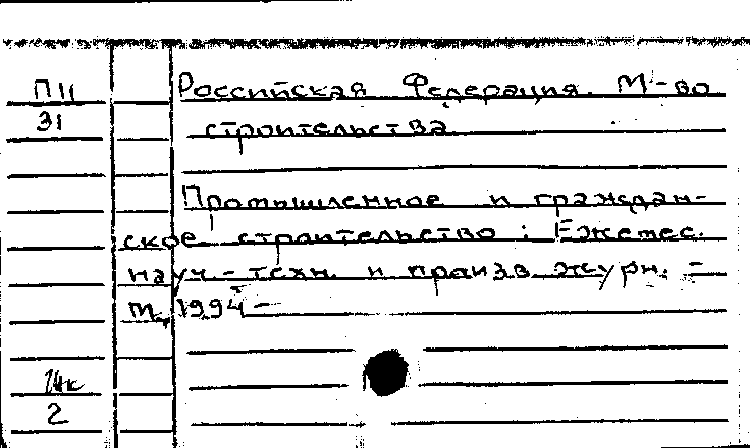 П11 Российская Федерация. М-во
31 строительства.
Промышленное и граждан-
ское строительство : Ежемес.
науч.-техн. и произв. журн. -
М., 1994 -
2